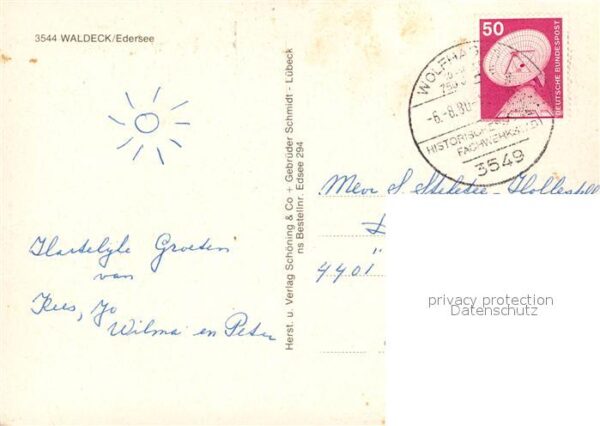 3544 WALDECK/Edersee
Hartelyke Groeten
van
Kees, Jo
Wilma en Peter
Herst. u. Verlag Schöning & Co + Gebrüder Schmidt - Lübeck
ns Bestellnr. Edsee 294
50
DEUTSCHE BUNDESPOST
WOLFHAG
-6.-8.80
HISTORISCHE
FACHWERKSTADT
3549
Mevr S
4401
privacy protection
Datenschutz